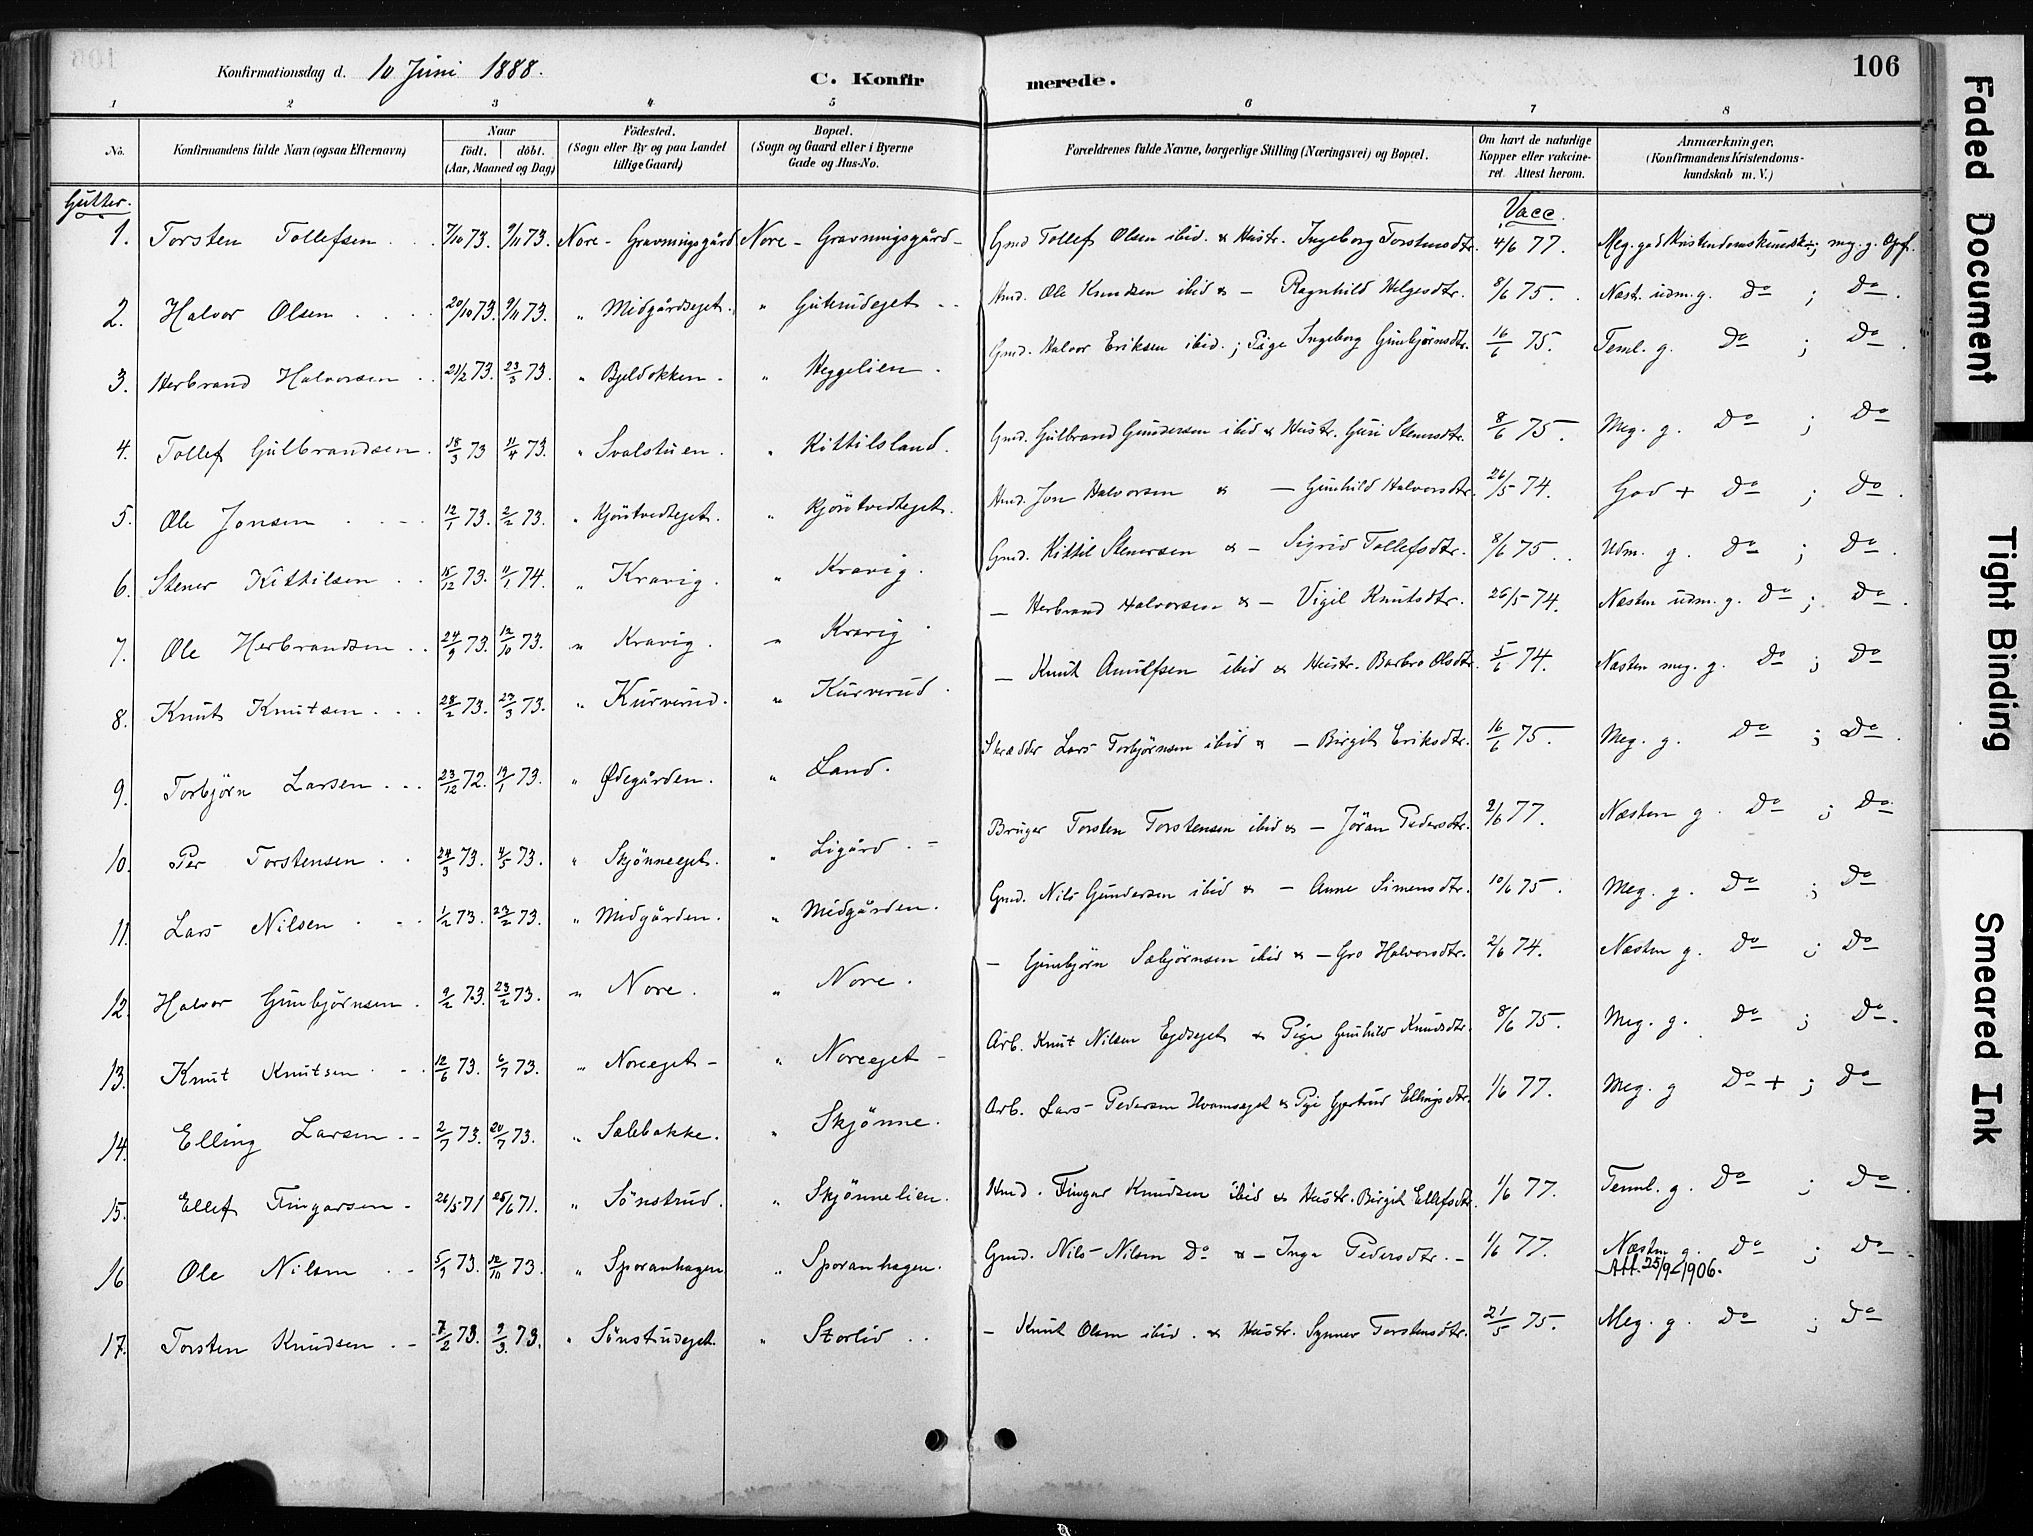 Konfirmationsdag d. 10 Juni 1888.
C. Konfirmerede.
106
1 2 3 4 5 6 7 8
No. Konfirmandens fulde Navn (ogsaa Efternavn) Naar født. døbt. (Aar, Maaned og Dag) Fødested. (Sogn eller By og paa Landet tillige Gaard) Bopæl. (Sogn og Gaard eller i Byerne Gade og Hus-No. Forældrenes fulde Navne, borgerlige Stilling (Næringsvei) og Bopæl. Om havt de naturlige Kopper eller vakcineret. Attest herom. Anmærkninger. (Konfirmandens Kristendomskundskab m. V.)
Gutter. Vacc.
1. Torsten Tollefsen 7/10 73. 9/11 73. Nore - Gravningsgård Nore - Gravningsgård - Gmd Tollef Olsen ibid. & Hustr. Ingeborg Torstensdtr. 4/6 77. Meg. god Kristendomskundsk.; meg. g. Opf.
2. Halvor Olsen 20/10 73. 9/11 73. " Midgårdseget. " Guterudeget Hmd. Ole Knudsen ibid & - Ragnhild Helgesdtr. 8/6 75. Næst. udm. g. Do ; Do.
3. Herbrand Halvorsen 21/2 73. 23/3 73. " Bjeldokken. " Heggelien. Gmd. Halvor Eriksen ibid.; Pige Ingeborg Gunbjørnsdtr. 16/6 75. Teml. g. Do ; Do.
4. Tollef Gulbrandsen. 18/3 73 11/4 73. " Svalstuen. " Kittilsland. Gmd. Gulbrand Gundersen ibid & Hustr. Guri Stenersdtr. 8/6 75. Meg. g. Do ; Do
5. Ole Jonsen 12/1 73. 2/2 73. " Kjøntvedteget. " Kjøntvedteget. Hmd. Jon Halvorsen & - Gunhild Halvorsdtr. 26/5 74. God + Do ; Do.
6. Stener Kittilsen 15/12 73. 11/1 74. " Kravig. " Kravig. Gmd. Kittil Stenersen & - Sigrid Tollefsdtr. 8/6 75. Udm. g. Do ; Do.
7. Ole Herbrandsen 24/9 73. 12/10 73. " Kravig. " Kravig. - Herbrand Halvorsen & - Vigil Knutsdtr. 26/5 74. Næsten udm. g. Do ; Do.
8. Knut Knutsen 28/2 73. 23/3 73. " Kurverud. " Kurverud. - Knut Anulfsen ibid & Hustr. Barbro Olsdtr. 5/6 74. Næsten meg. g. Do ; Do
9. Torbjörn Larsen 23/12 72. 19/1 73. " Ødegården. " Land. Skrædder Lars Torbjørnsen ibid & - Birgit Eriksdtr. 16/6 75. Meg. g. Do ; Do.
10. Per Torstensen 24/3 73. 4/5 73. " Skjønneeget. " Ligård. Bruger Torsten Torstensen ibid & - Jøran Pedersdtr. 2/6 77. Næsten g. Do ; Do.
11. Lars Nilsen 1/2 73. 23/2 73. " Midgården. " Midgården. Gmd. Nils Gundersen ibid & - Anne Simensdtr. 10/6 75. Meg. g. Do ; Do
12. Halvor Gunbjørnsen. 9/2 73. 23/2 73. " Nore. " Nore. - Gunbjørn Sæbjørnsen ibid & - Gro Halvorsdtr. 2/6 74. Næsten g. Do ; Do
13. Knut Knutsen 12/6 73. 6/7 73. " Noreeget - " Noreeget - Arb. Knut Nilsen Eydseget & Pige Gunhild Knudsdtr. 8/6 75. Meg. g. Do ; Do.
14. Elling Larsen 2/7 73. 20/7 73. " Salebakke. " Skjønne. Arb. Lars Pedersen Hvamseget & Pige Gjertrud Ellingsdtr. 1/6 77. Meg. g Do + ; Do
15. Ellef Fingarsen 26/5 71 25/6 71. " Sönstrud. " Skjønnelien. Hmd. Fingar Knudsen ibid & Hustr. Birgit Ellefsdtr. 1/6 77. Teml. g. Do ; Do.
16 Ole Nilsen 5/9 73. 12/10 73. " Sporanhagen " Sporanhagen. Gmd. Nils Nilsen Do & - Inga Pedersdtr. 1/6 77. Næsten g. Do ; Do
Att. 25/9 1906.
17. Torsten Knudsen 7/2 73. 9/3 73. " Sönstrudeget. " Storlid - Knut Olsen ibid. & Hustr. Synnev Torstensdtr. 21/5 75. Meg. g. Do ; Do
Faded Document
Tight Binding
Smeared Ink